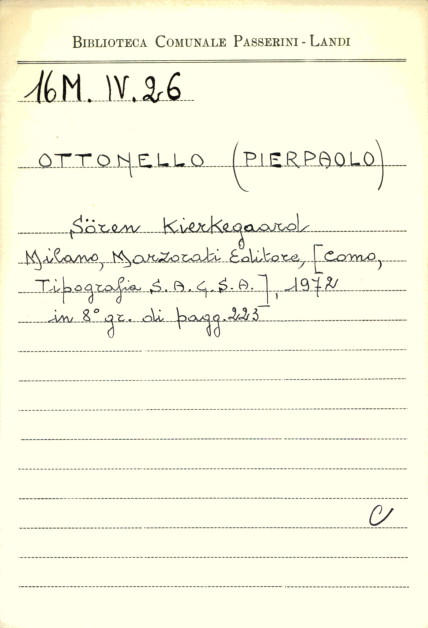 BIBLIOTECA COMUNALE PASSERINI - LANDI
16M. IV. 26
OTTONELLO (PIERPAOLO)
Sören Kierkegaard
Milano, Marzorati Editore, [Como,
Tipografia S. A. G. S. A.], 1972
in 8° gr. di pagg. 223
C